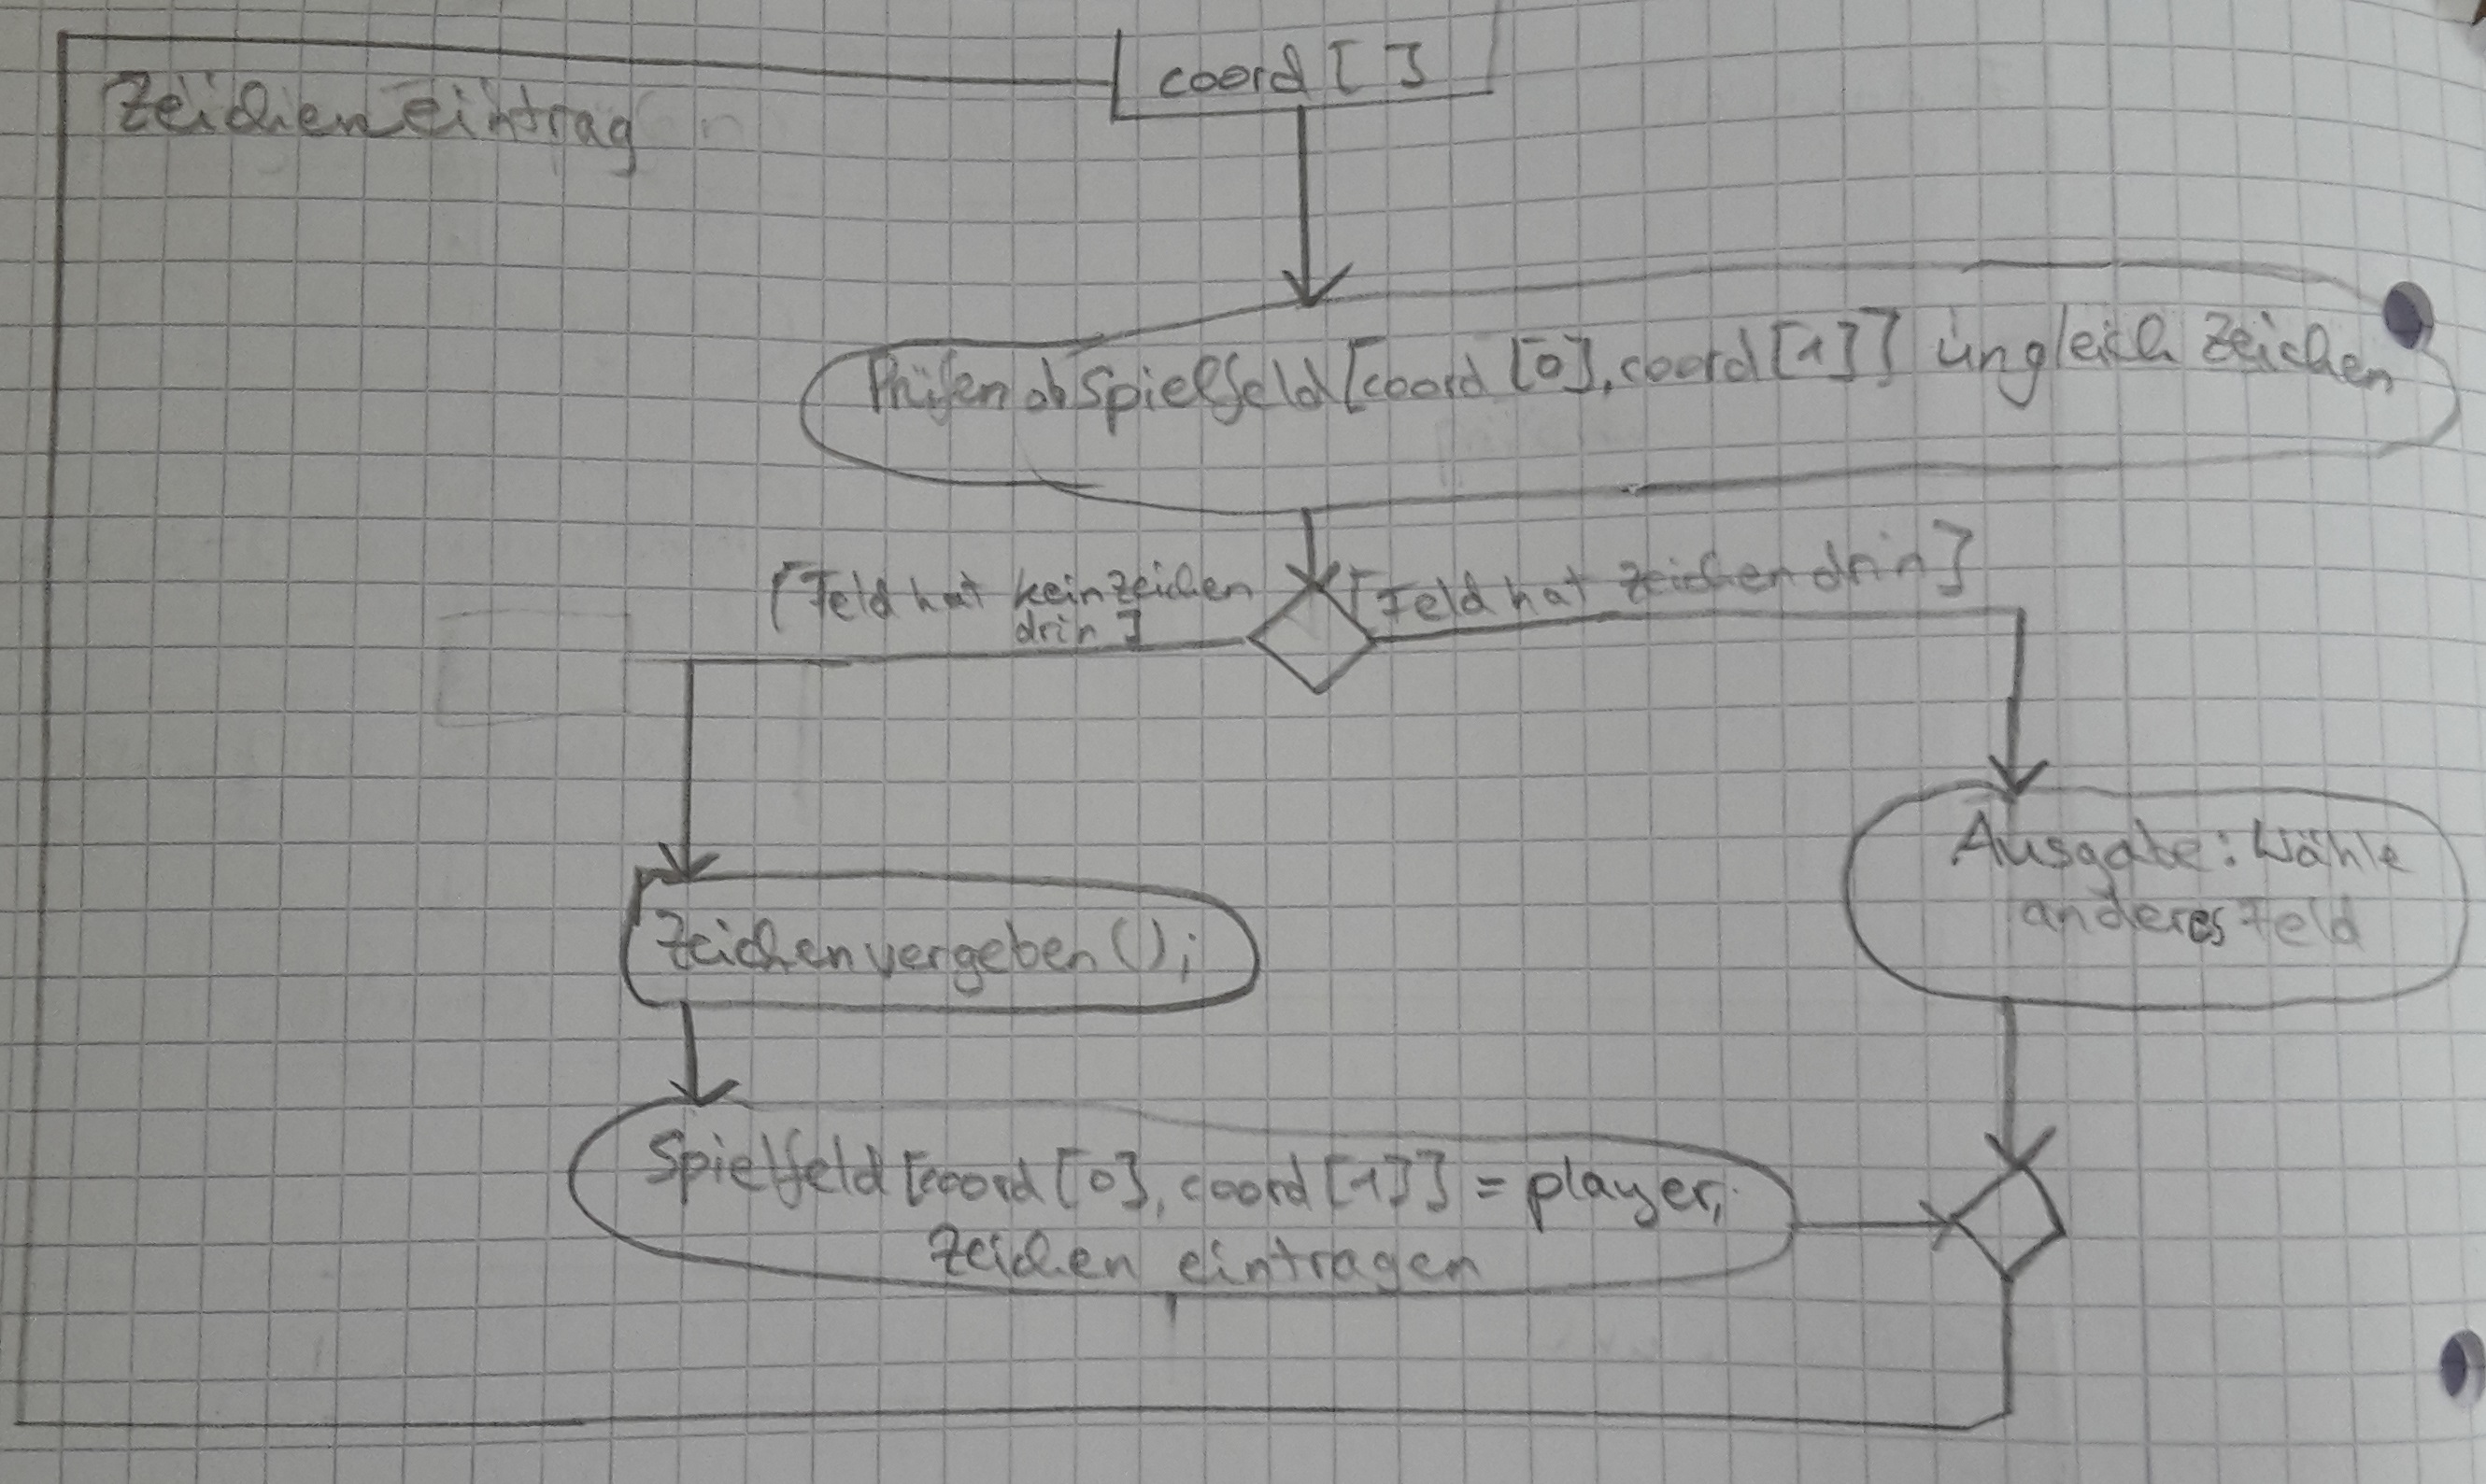 coord [ ]
Zeicheneintrag
Prüfen ob Spielfeld [coord [0], coord [1]] ungleich Zeichen
[Feld hat kein zeichen
drin]
[Feld hat zeichen drin]
Ausgabe: Wähle
anderes Feld
Zeichenvergeben();
Spielfeld [coord [0], coord [1]] = player;
Zeichen eintragen